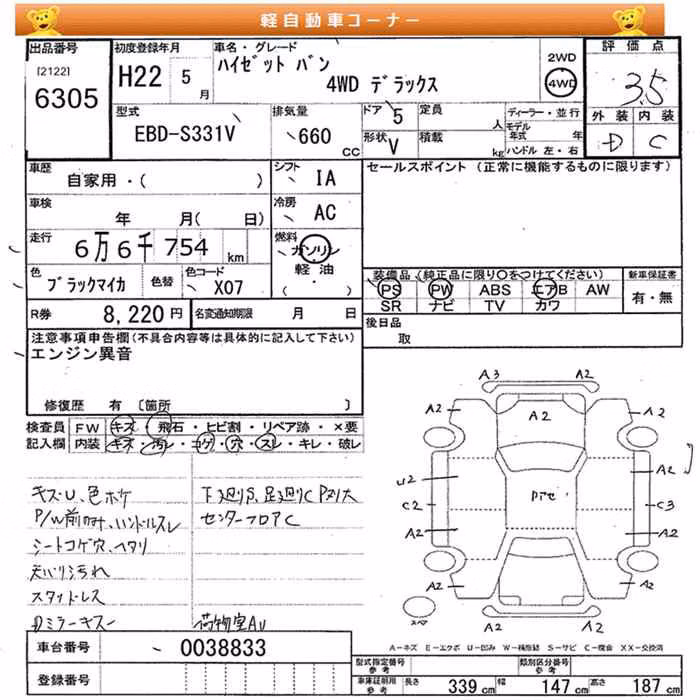 軽自動車コーナー
出品番号 初度登録年月 車名・グレード 評価点
[2122] 6305
H22 5月
ハイゼット バン
4WD デラックス
2WD
4WD
3.5
外装 内装
D C
型式 排気量 ドア 定員 ディーラー・並行
EBD-S331V 660 CC 5 人 モデル年式 年
形状 V 積載 kg ハンドル 左・右
車歴 シフト セールスポイント (正常に機能するものに限ります)
自家用・( ) IA
車検 冷房
年 月( 日) AC
走行 燃料
6万6千754 km ガソリン
軽油
色 色替 色コード
ブラックマイカ X07
装備品(純正品に限り○をつけてください) 新車保証書
PS PW ABS エアB AW 有・無
SR ナビ TV カワ
R券 8,220円 名変通知期限 月 日
後日品
取
注意事項申告欄(不具合内容等は具体的に記入して下さい)
エンジン異音
修復歴 有 〔箇所 〕
検査員 FW キズ・飛石・ヒビ割・リペア跡・×要
記入欄 内装 キズ・汚レ・コゲ・穴・スレ・キレ・破レ
キズU、色ボケ
ハンドルスレ
シートコゲ穴、ヘタリ
汚れ
スタッドレス
Dミラーキズ
センターフロアC
荷物室AU
A3 A2
A2 A2 A2
U2 A2
C2 C3
A2 A2
A2 A2
A2 A2
スペア
A-キズ E-エクボ U-凹み S-サビ C-腐食 XX-交換済
車台番号 0038833
登録番号
型式指定番号 参考 類別区分番号 参考
車庫証明用 参考 長さ 339 cm 幅 147 cm 高さ 187 cm